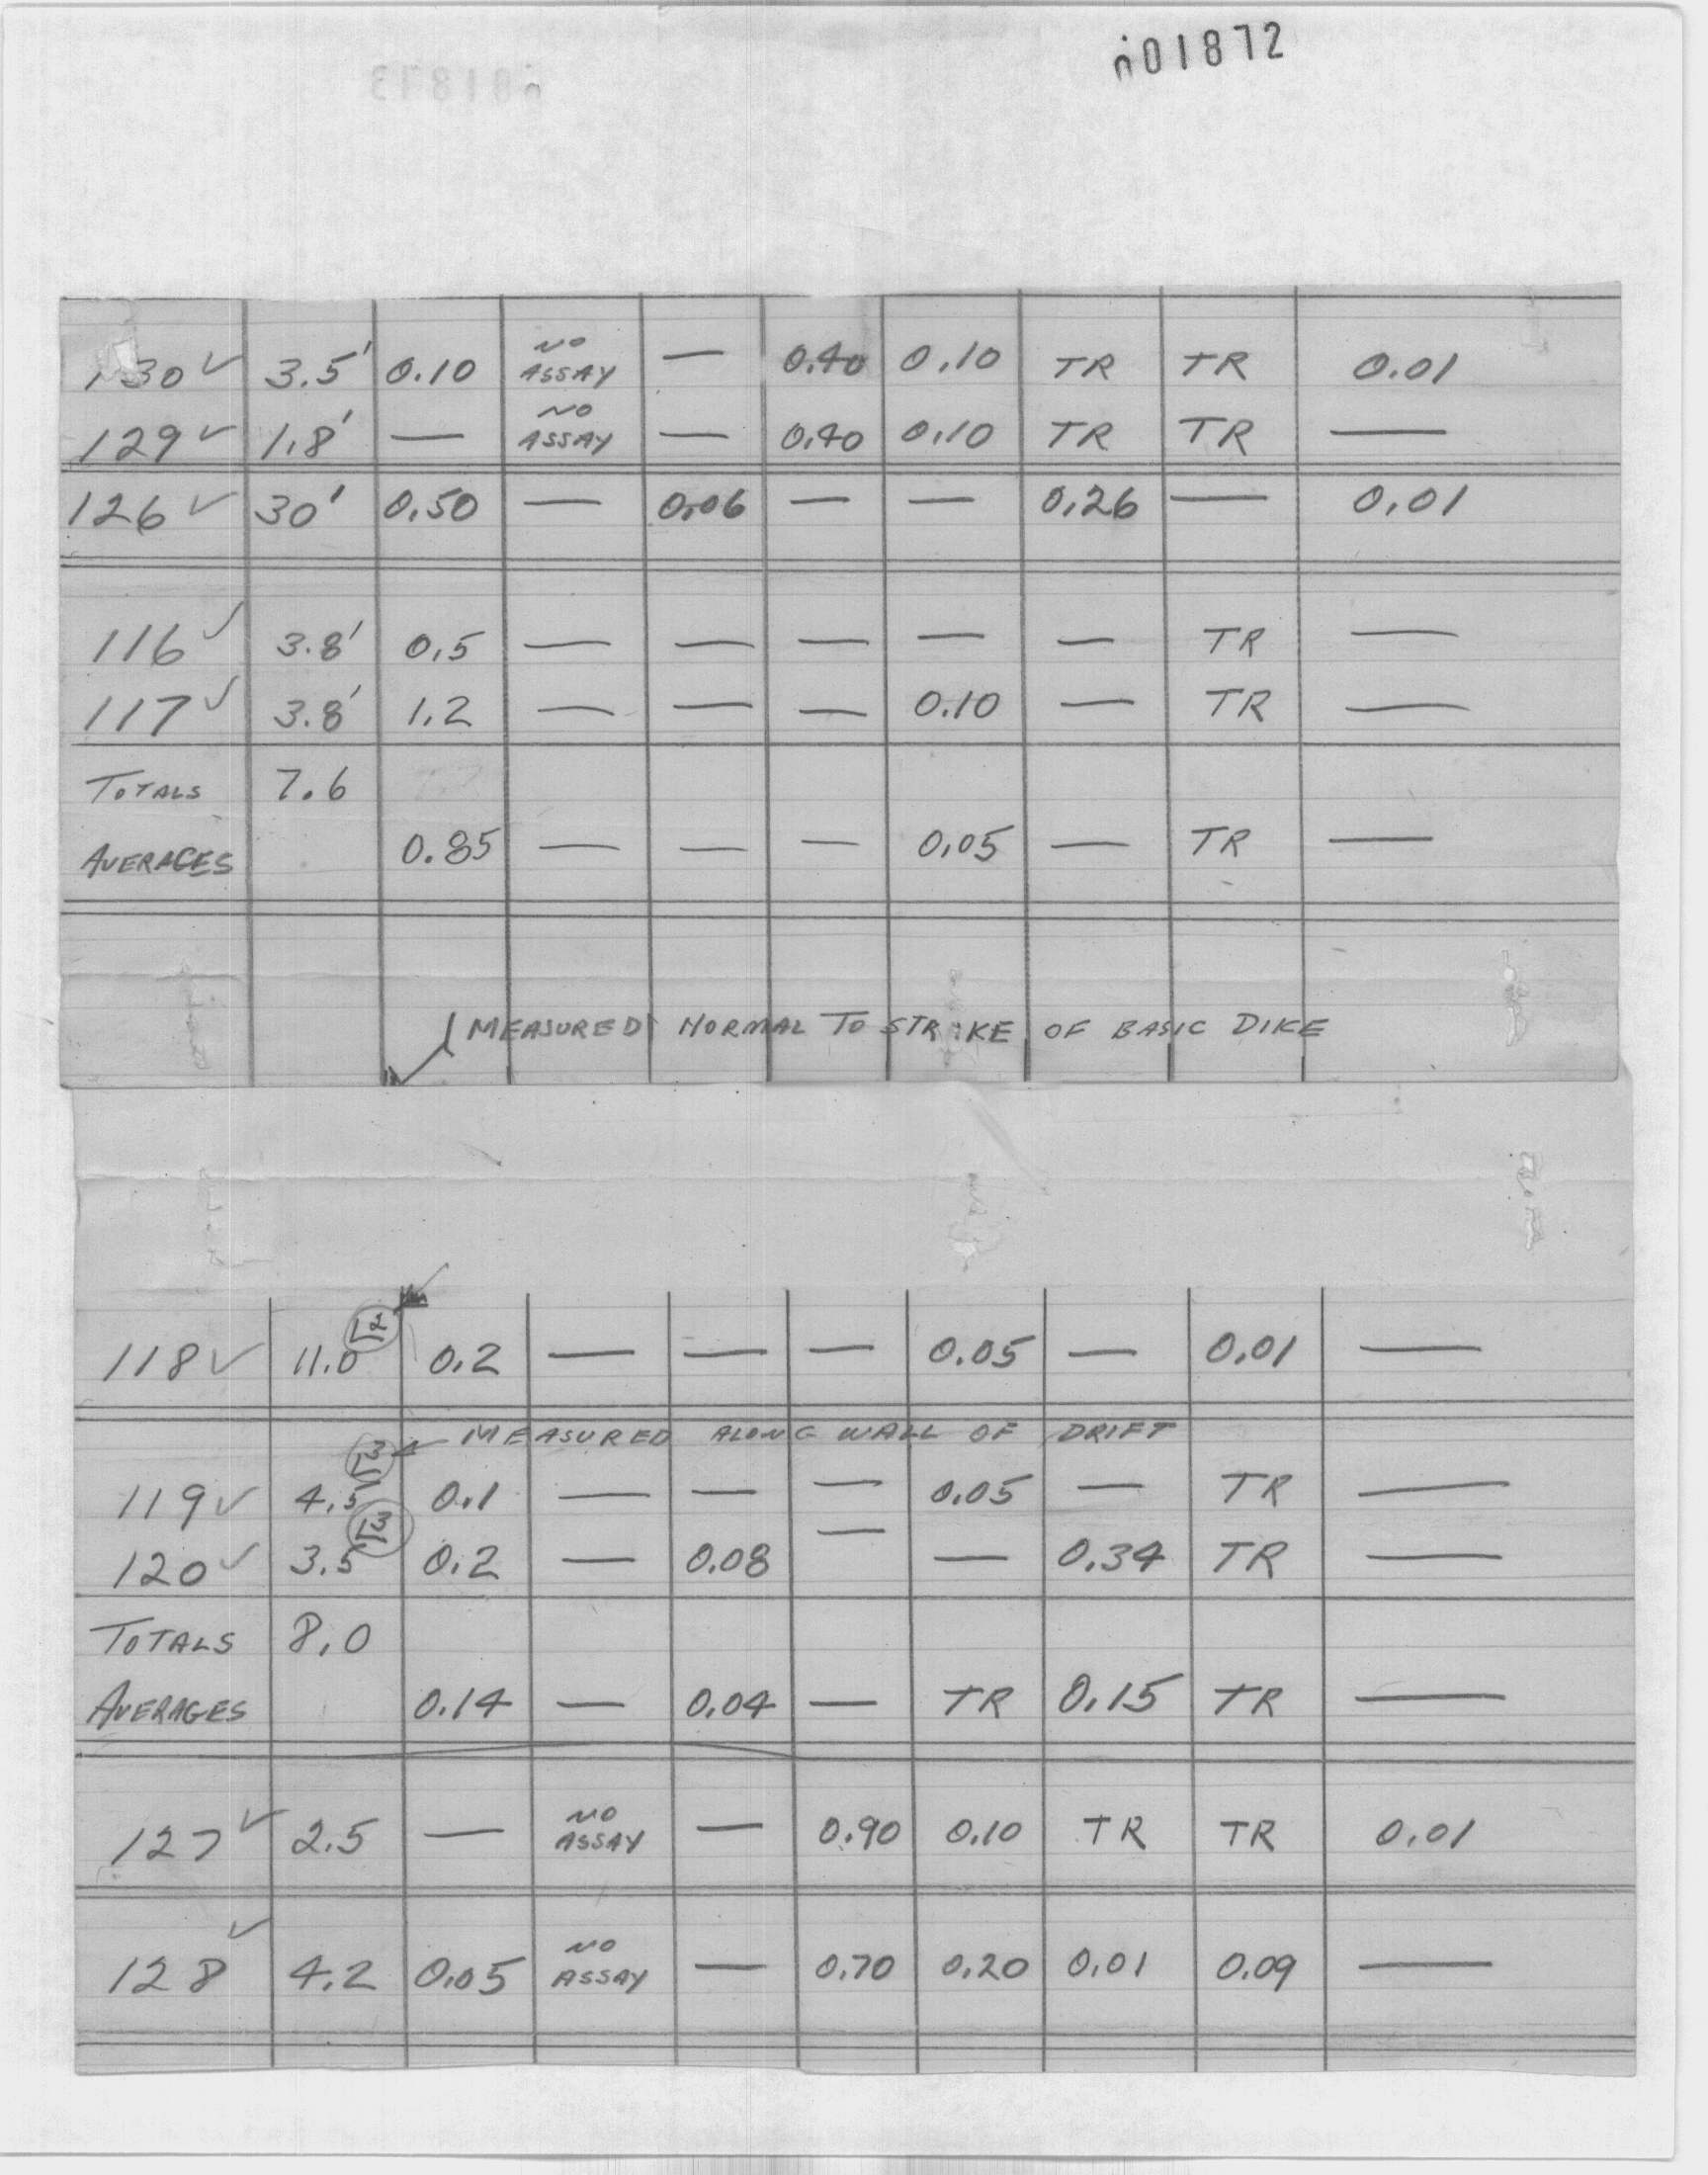 001872
130✓ 3.5' 0.10 NO ASSAY — 0.40 0.10 TR TR 0.01
129✓ 1.8' — NO ASSAY — 0.40 0.10 TR TR —
126✓ 30' 0.50 — 0.06 — — 0.26 — 0.01
116✓ 3.8' 0.5 — — — — — TR —
117✓ 3.8' 1.2 — — — 0.10 — TR —
TOTALS 7.6
AVERAGES 0.85 — — — 0.05 — TR —
MEASURED NORMAL TO STRIKE OF BASIC DIKE
118✓ 11.0 0.2 — — — 0.05 — 0.01 —
MEASURED ALONG WALL OF DRIFT
119✓ 4.5 0.1 — — — 0.05 — TR —
120✓ 3.5 0.2 — 0.08 — — 0.34 TR —
TOTALS 8.0
AVERAGES 0.14 — 0.04 — TR 0.15 TR —
127✓ 2.5 — NO ASSAY — 0.90 0.10 TR TR 0.01
128✓ 4.2 0.05 NO ASSAY — 0.70 0.20 0.01 0.09 —